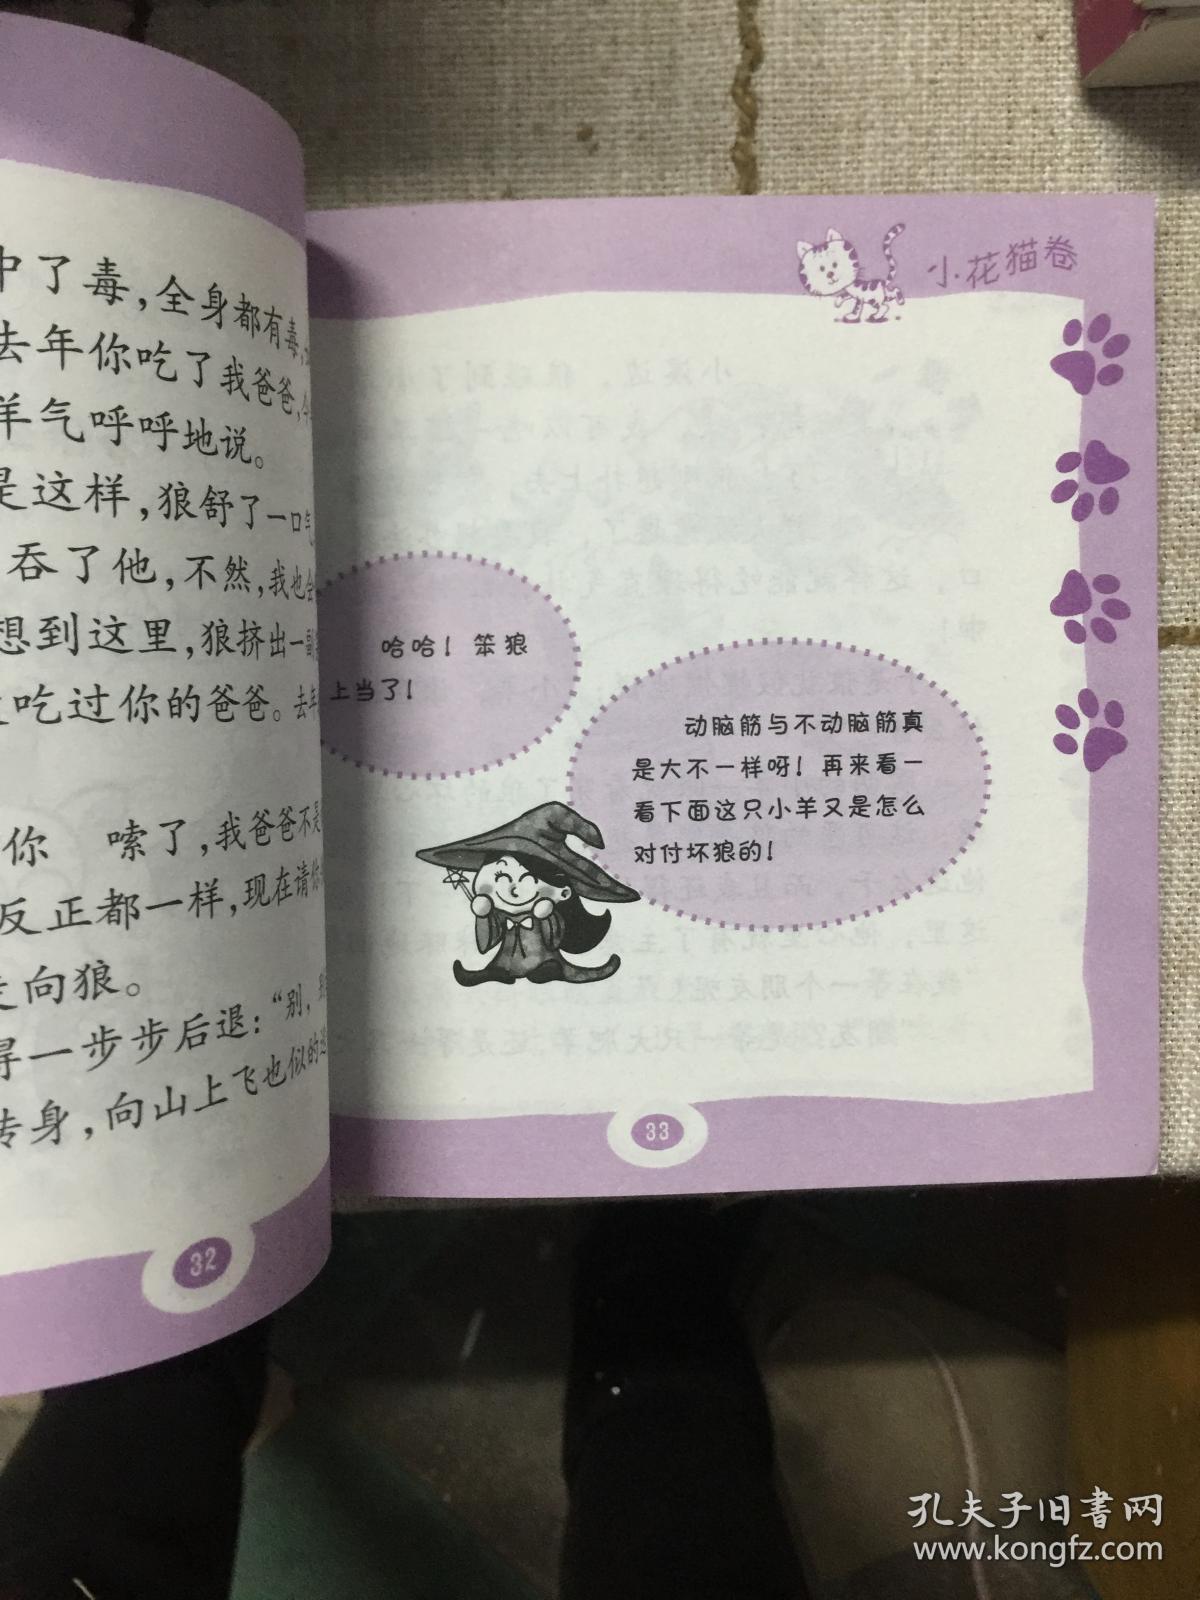 中了毒，全身都有毒，
去年你吃了我爸爸，
羊气呼呼地说。
是这样，狼舒了一口气
吞了他，不然，我也会
想到这里，狼挤出一副
吃过你的爸爸。去年
你 嗦了，我爸爸不是
反正都一样，现在请你
走向狼。
得一步步后退：“别，
转身，向山上飞也似的逃
32
小花猫卷
哈哈！笨狼
上当了！
动脑筋与不动脑筋真
是大不一样呀！再来看一
看下面这只小羊又是怎么
对付坏狼的！
33
孔夫子旧书网
www.kongfz.com